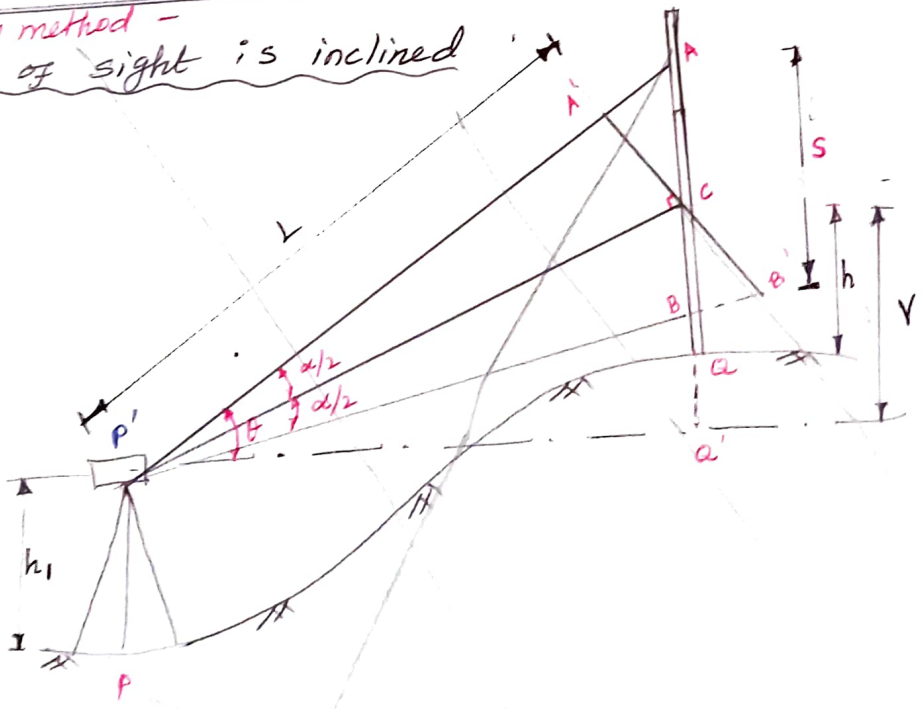 method -
of sight is inclined
A
A'
S
L
C
B'
h
B
V
α/2
α/2
Q
P'
θ
Q'
h₁
P